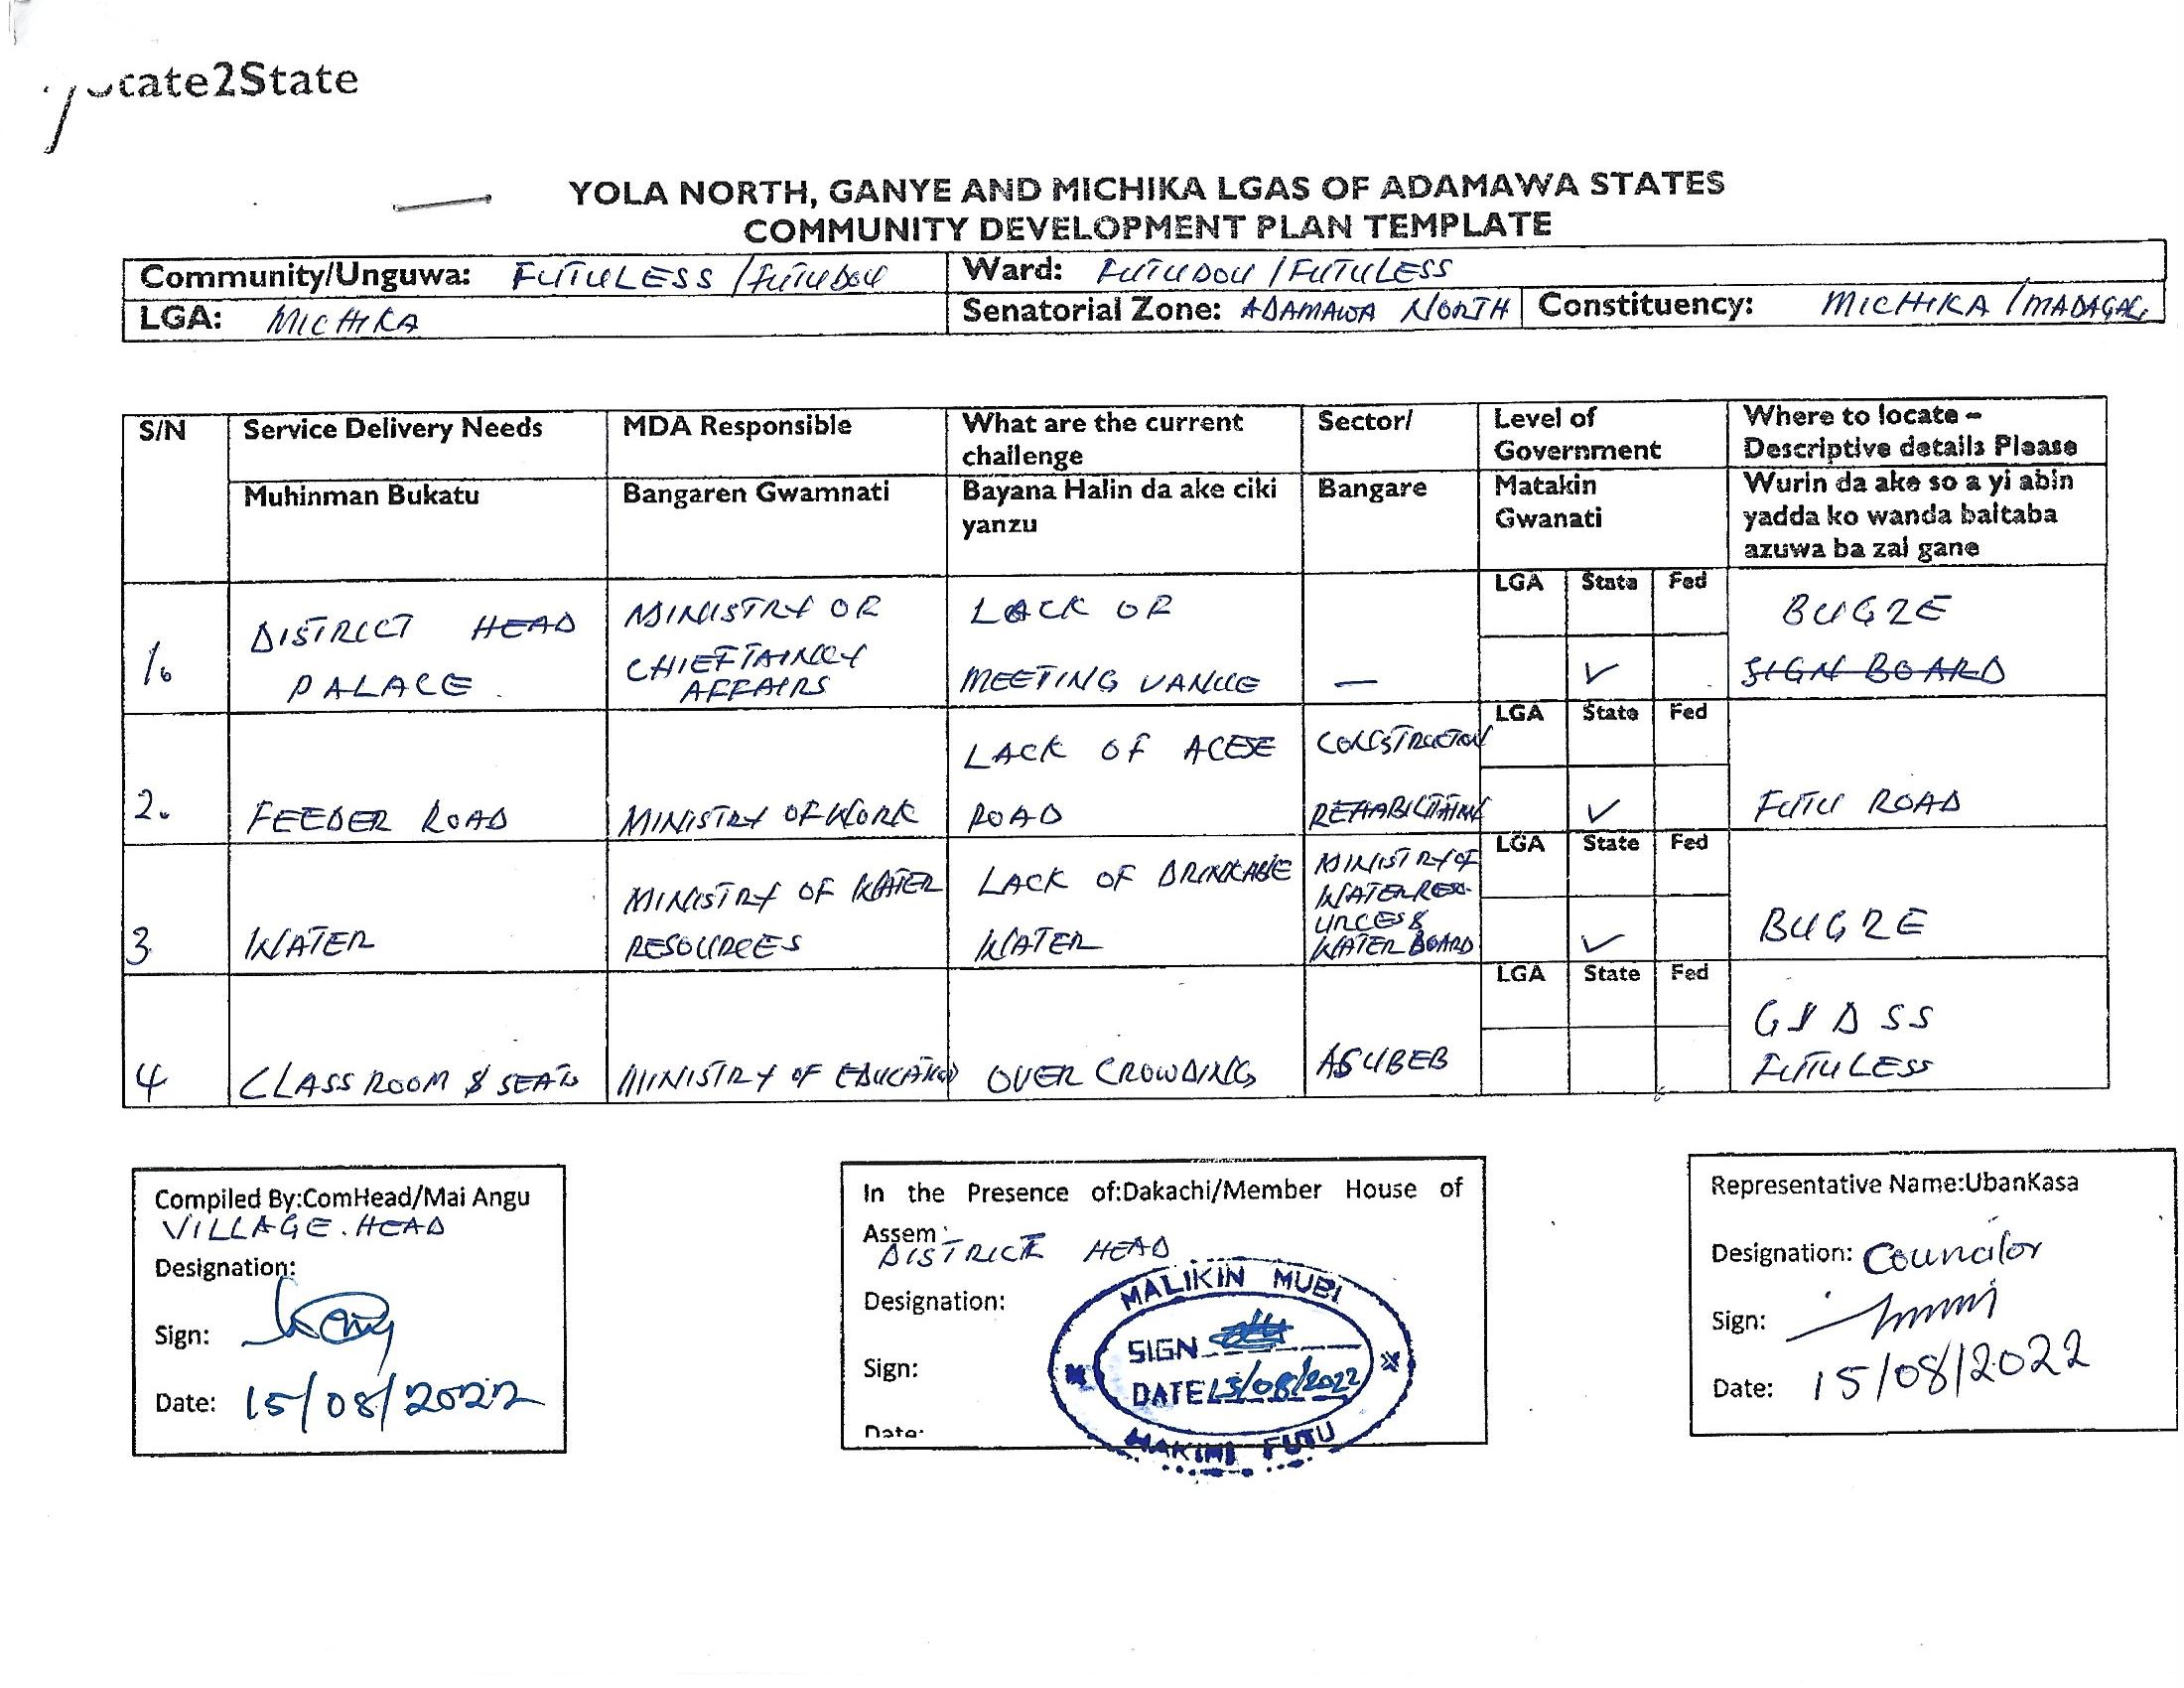 cate2State
YOLA NORTH, GANYE AND MICHIKA LGAS OF ADAMAWA STATES
COMMUNITY DEVELOPMENT PLAN TEMPLATE
Community/Unguwa: FUTULESS / FUTUDOU
Ward: FUTUDOU / FUTULESS
LGA: MICHIKA
Senatorial Zone: ADAMAWA NORTH
Constituency: MICHIKA / MADAGAL
S/N
Service Delivery Needs
MDA Responsible
What are the current
challenge
Sector/
Level of
Government
Where to locate –
Descriptive details Please
Muhinman Bukatu
Bangaren Gwamnati
Bayana Halin da ake ciki
yanzu
Bangare
Matakin
Gwanati
Wurin da ake so a yi abin
yadda ko wanda baitaba
azuwa ba zai gane
1.
DISTRICT HEAD
PALACE.
MINISTRY OR
CHIEFTAINCY
AFFAIRS
LACK OR
MEETING VANUE
—
LGA State Fed
✓
BUGZE
SIGN BOARD
2.
FEEDER ROAD
MINISTRY OF WORK
LACK OF ACESE
ROAD
CONSTRUCTION
LGA State Fed
✓
FUTU ROAD
3.
WATER
MINISTRY OF WATER
RESOURCES
LACK OF DRINKABE
WATER
MINISTRY OF
WATER RESO-
URCES &
WATER BOARD
LGA State Fed
✓
BUGZE
4
CLASS ROOM & SEATS
MINISTRY OF EDUCATION
OVER CROWDING
ASUBEB
LGA State Fed
DSS
FUTULESS
Compiled By:ComHead/Mai Angu
VILLAGE. HEAD
Designation:
Sign:
Date: 15/08/2022
In the Presence of:Dakachi/Member House of
Assem
DISTRICT HEAD
Designation:
Sign:
Date:
MALIKIN MUBI
SIGN
DATE 15/08/2022
HAKIMI FUTU
Representative Name:UbanKasa
Designation: Councilor
Sign:
Date: 15/08/2022